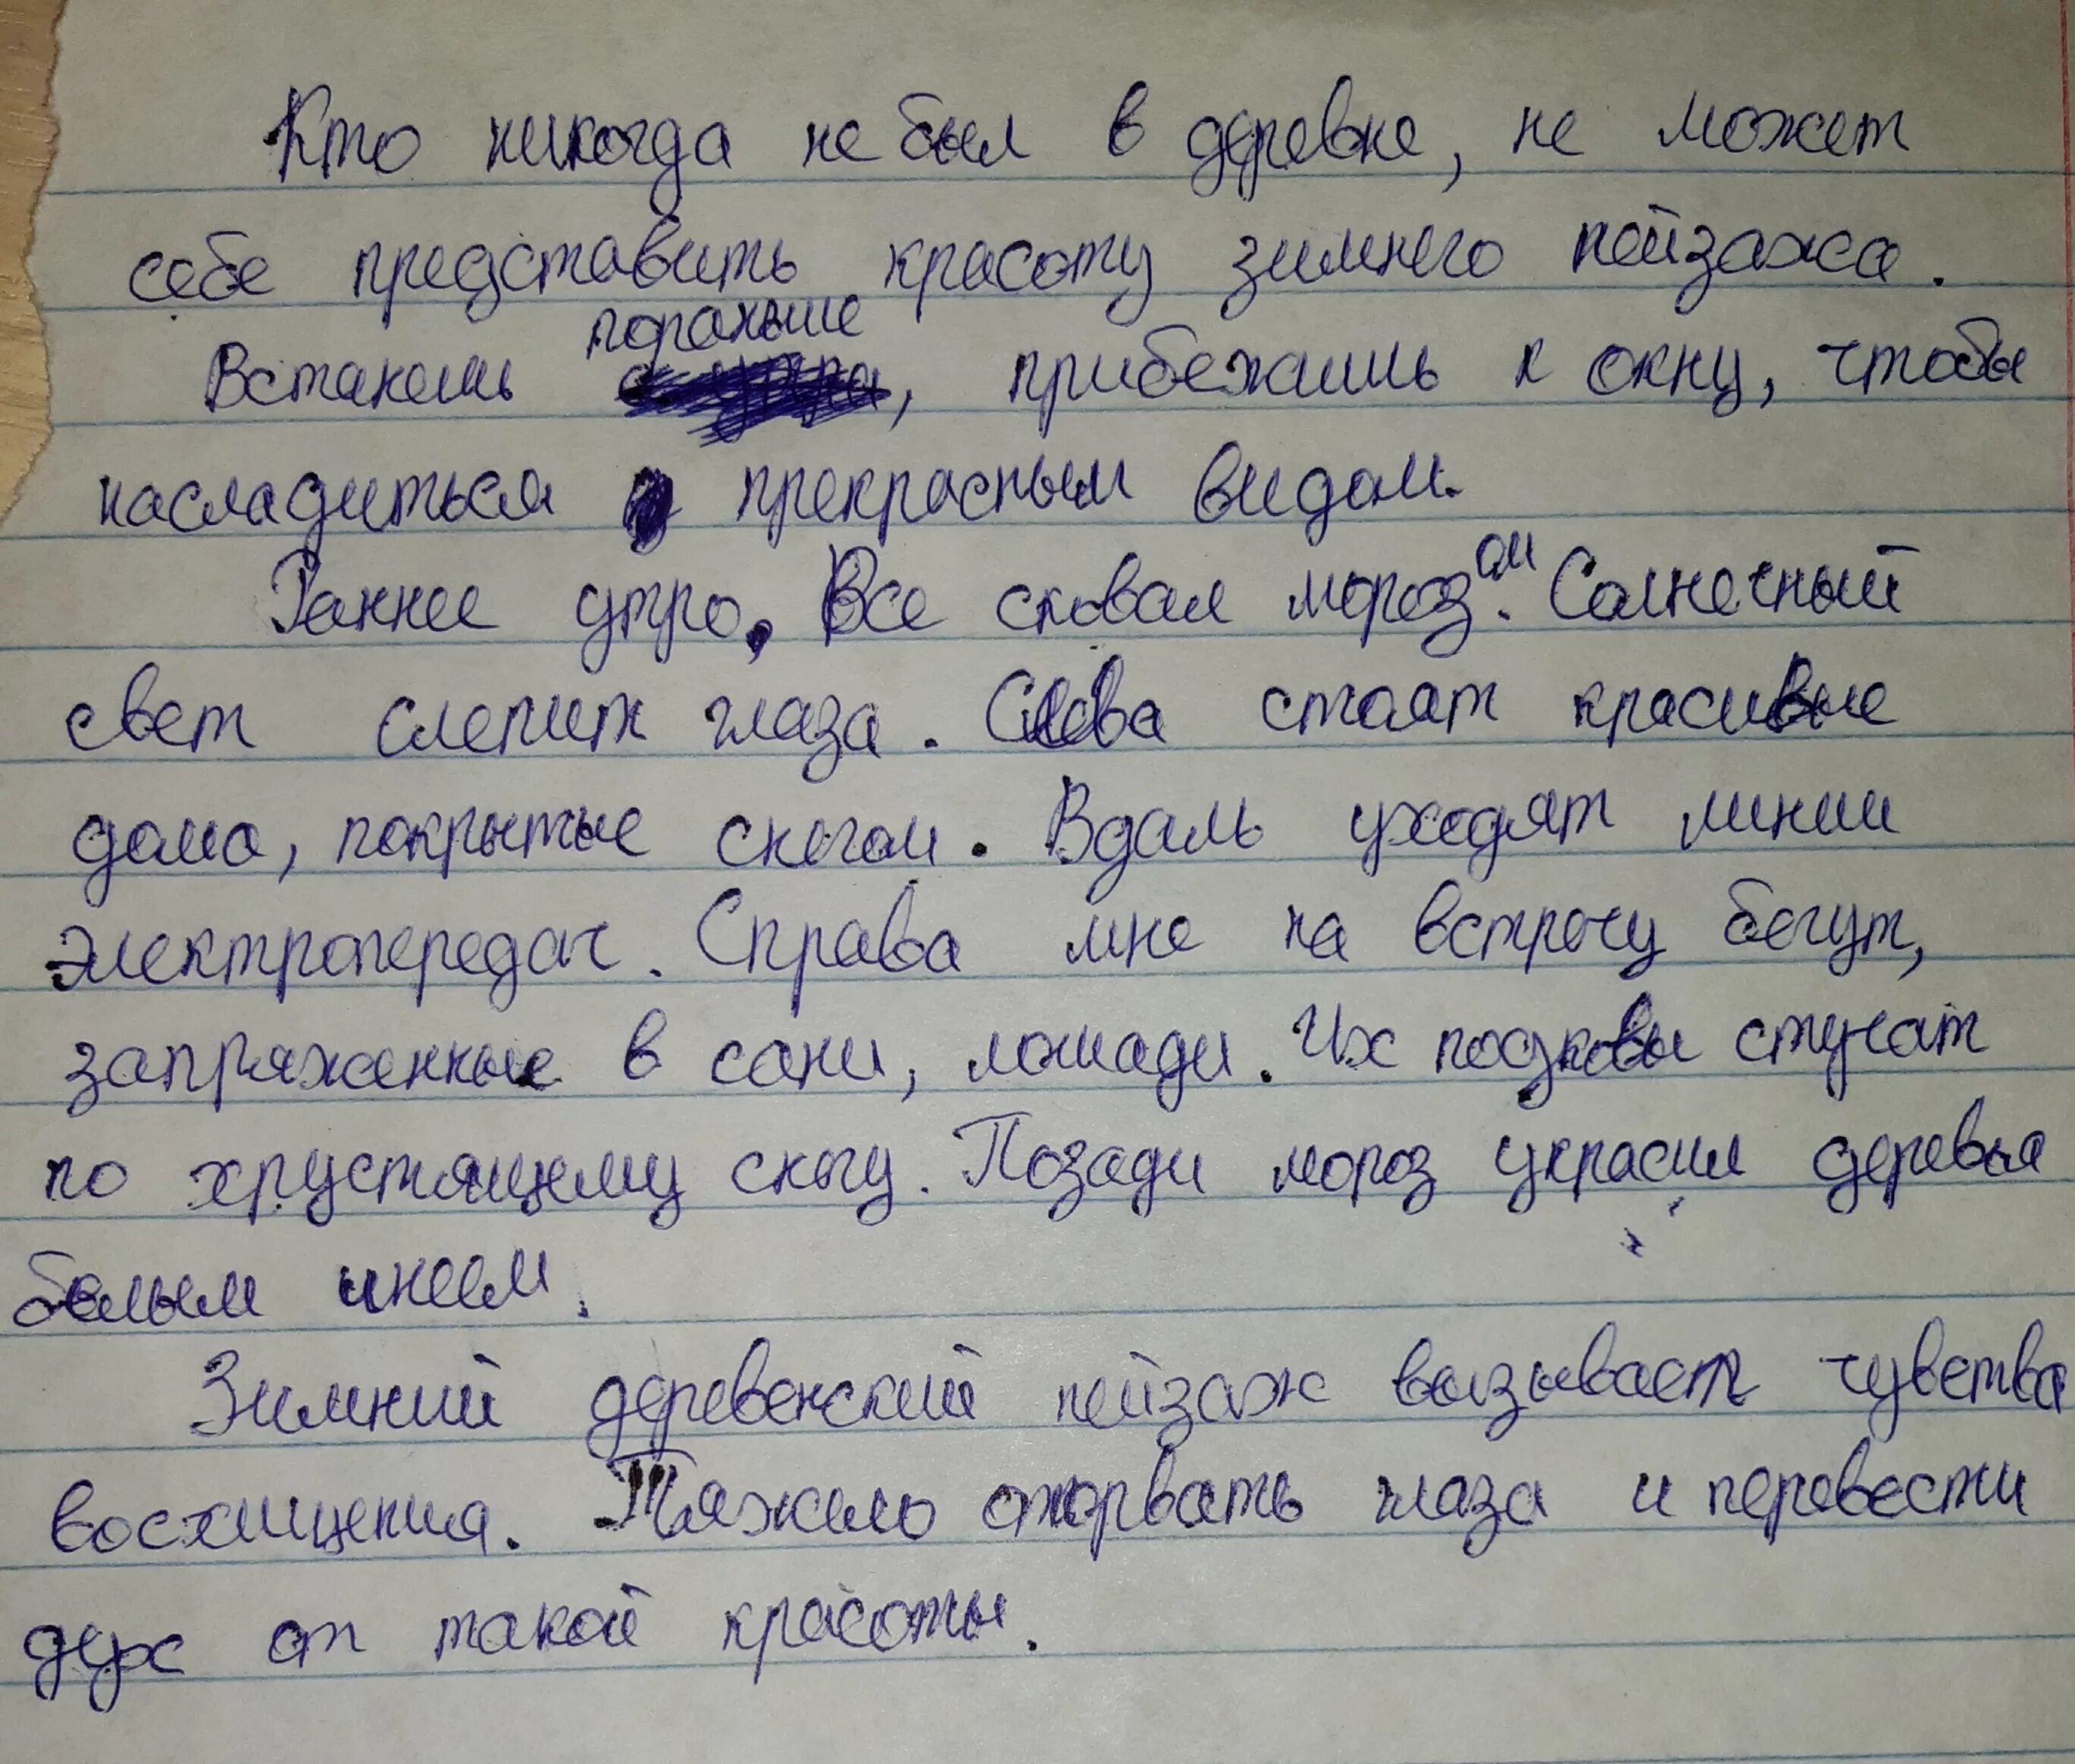 Кто никогда не был в деревне, не может
себе представить красоту зимнего пейзажа.
Встанешь пораньше, прибежишь к окну, чтобы
насладиться прекрасным видом.
Раннее утро. Все сковал морозом. Солнечный
свет слепит глаза. Слева стоят красивые
дома, покрытые снегом. Вдаль уходят линии
электропередач. Справа мне на встречу бегут,
запряженные в сани, лошади. Их подковы стучат
по хрустящему снегу. Позади мороз украсил деревья
белым инеем.
Зимний деревенский пейзаж вызывает чувства
восхищения. Тяжело оторвать глаза и перевести
дух от такой красоты.